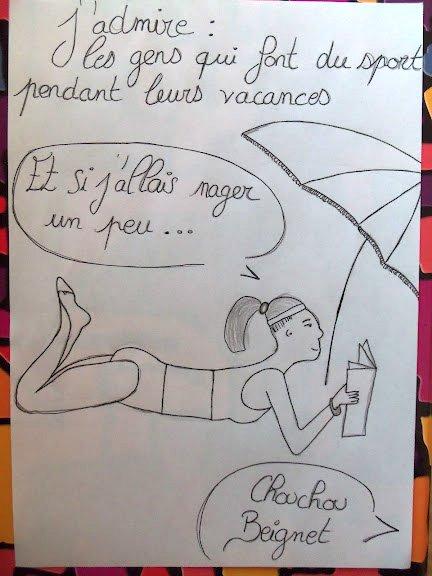 j'admire :
les gens qui font du sport
pendant leurs vacances
Et si j'allais nager
un peu ...
Chouchou
Beignet